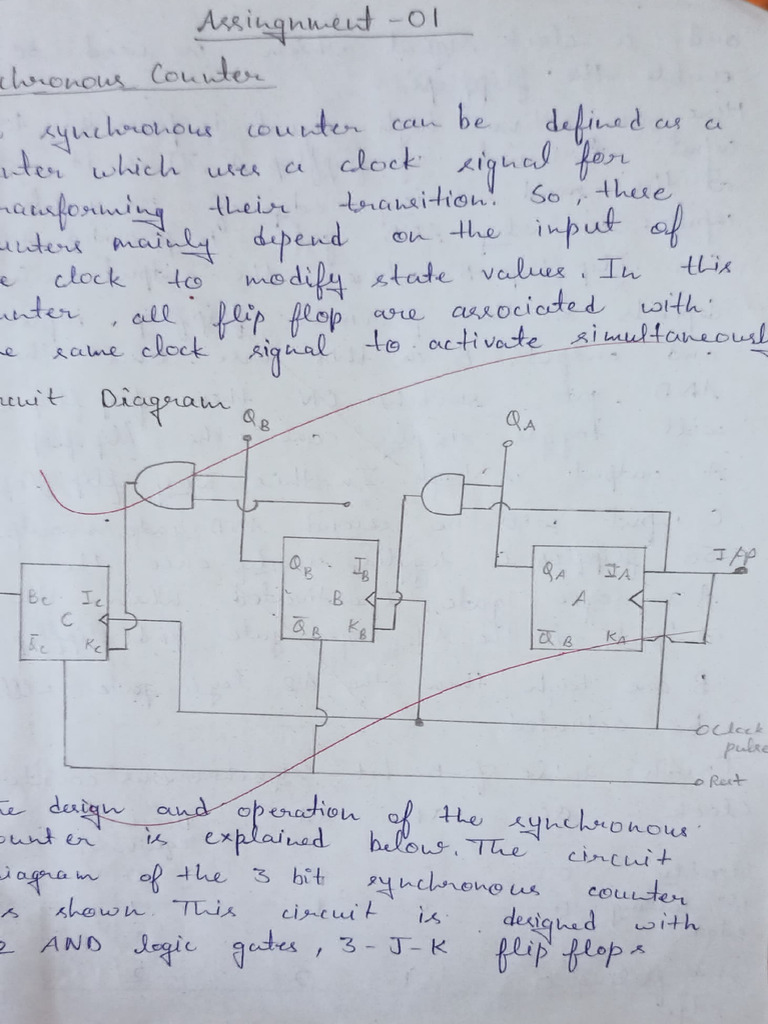 Assingnment - 01
chronous Counter
synchronous counter can be defined as a
nter which uses a clock signal for
ransforming their transition. So, these
unters mainly dipend on the input of
e clock to modify state values. In this
unter, all flip flop are associated with
e same clock signal to activate simultaneously
rcuit Diagram
QB QA
I/P
QB JB QA JA
Bc Jc B A
C Q̅B KB Q̅B KA
Q̅c Kc
Clock
pulse
Rut
e design and operation of the synchronous
ounter is explained below. The circuit
iagram of the 3 bit synchronous counter
s shown. This circuit is designed with
2 AND logic gates, 3 - J - K flip flops